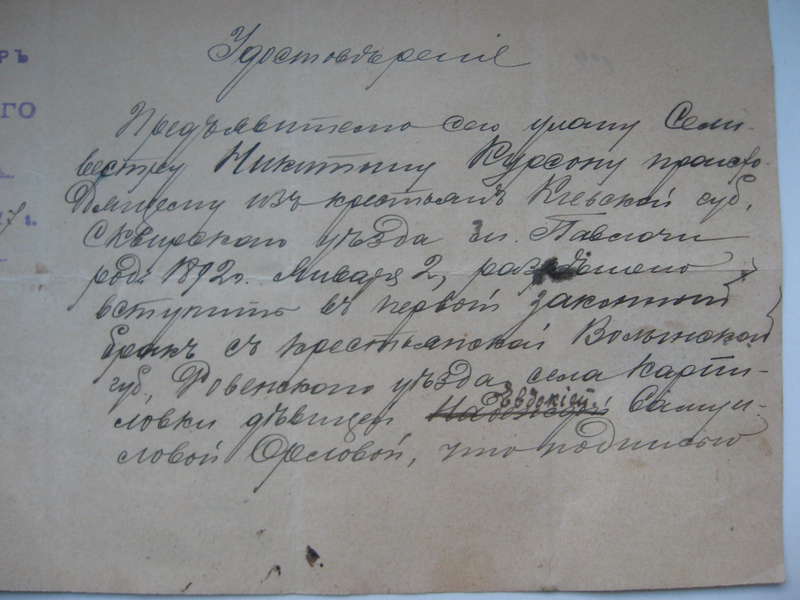 Ъ
ГО
7 г.
Удостовѣреніе
Предъявителю сего улану Сели-
вестру Никитину Курсону происхо-
дящему изъ крестьянъ Кіевской губ,
Сквирскаго уѣзда м. Паволочи
род. 1892 г. Января 2, разрѣшено
вступить въ первой законный
бракъ съ крестьянской Волынской
губ, Ровенскаго уѣзда, села Карпи-
ловки дѣвицей Евдокіей Самуи-
ловой Орловой, что подписью